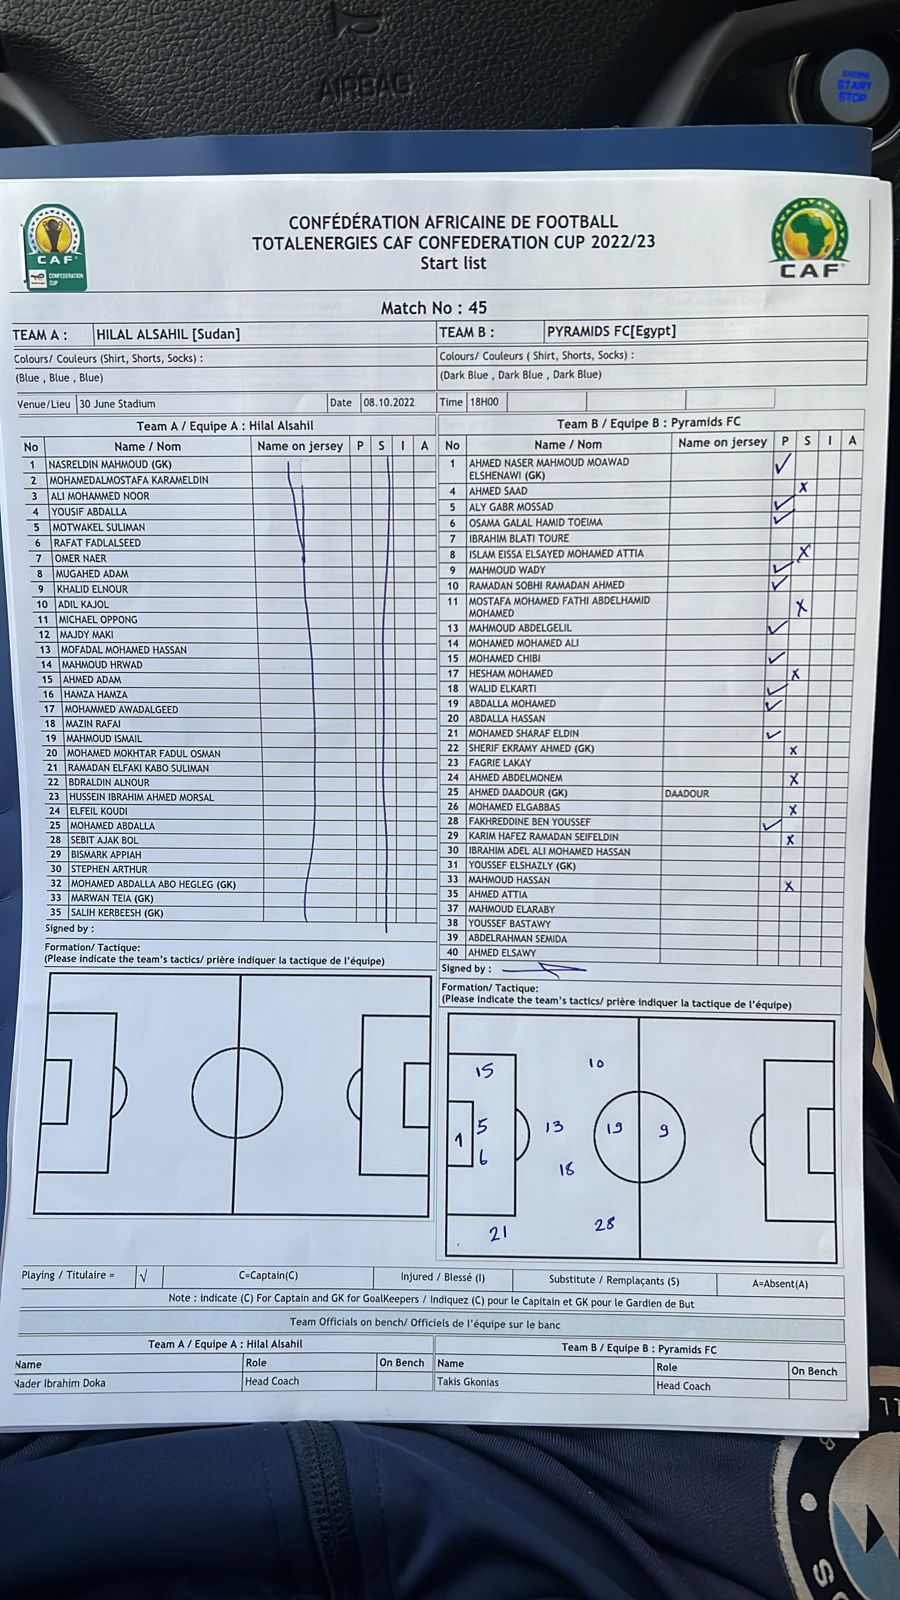 AIRBAG
ENGINE
START
STOP
CAF
CONFEDERATION
CUP
CONFÉDÉRATION AFRICAINE DE FOOTBALL
TOTALENERGIES CAF CONFEDERATION CUP 2022/23
Start list
CAF
Match No : 45
TEAM A : HILAL ALSAHIL [Sudan]
TEAM B : PYRAMIDS FC[Egypt]
Colours/ Couleurs (Shirt, Shorts, Socks) :
(Blue , Blue , Blue)
Colours/ Couleurs ( Shirt, Shorts, Socks) :
(Dark Blue , Dark Blue , Dark Blue)
Venue/Lieu 30 June Stadium Date 08.10.2022 Time 18H00
Team A / Equipe A : Hilal Alsahil
No Name / Nom Name on jersey P S I A
1 NASRELDIN MAHMOUD (GK)
2 MOHAMEDALMOSTAFA KARAMELDIN
3 ALI MOHAMMED NOOR
4 YOUSIF ABDALLA
5 MOTWAKEL SULIMAN
6 RAFAT FADLALSEED
7 OMER NAER
8 MUGAHED ADAM
9 KHALID ELNOUR
10 ADIL KAJOL
11 MICHAEL OPPONG
12 MAJDY MAKI
13 MOFADAL MOHAMED HASSAN
14 MAHMOUD HRWAD
15 AHMED ADAM
16 HAMZA HAMZA
17 MOHAMMED AWADALGEED
18 MAZIN RAFAI
19 MAHMOUD ISMAIL
20 MOHAMED MOKHTAR FADUL OSMAN
21 RAMADAN ELFAKI KABO SULIMAN
22 BDRALDIN ALNOUR
23 HUSSEIN IBRAHIM AHMED MORSAL
24 ELFEIL KOUDI
25 MOHAMED ABDALLA
28 SEBIT AJAK BOL
29 BISMARK APPIAH
30 STEPHEN ARTHUR
32 MOHAMED ABDALLA ABO HEGLEG (GK)
33 MARWAN TEIA (GK)
35 SALIH KERBEESH (GK)
Signed by :
Formation/ Tactique:
(Please indicate the team's tactics/ prière indiquer la tactique de l'équipe)
Team B / Equipe B : Pyramids FC
No Name / Nom Name on jersey P S I A
1 AHMED NASER MAHMOUD MOAWAD
ELSHENAWI (GK) ✓
4 AHMED SAAD x
5 ALY GABR MOSSAD ✓
6 OSAMA GALAL HAMID TOEIMA ✓
7 IBRAHIM BLATI TOURE
8 ISLAM EISSA ELSAYED MOHAMED ATTIA x
9 MAHMOUD WADY ✓
10 RAMADAN SOBHI RAMADAN AHMED ✓
11 MOSTAFA MOHAMED FATHI ABDELHAMID
MOHAMED x
13 MAHMOUD ABDELGELIL ✓
14 MOHAMED MOHAMED ALI
15 MOHAMED CHIBI ✓
17 HESHAM MOHAMED x
18 WALID ELKARTI ✓
19 ABDALLA MOHAMED ✓
20 ABDALLA HASSAN
21 MOHAMED SHARAF ELDIN ✓
22 SHERIF EKRAMY AHMED (GK) x
23 FAGRIE LAKAY
24 AHMED ABDELMONEM x
25 AHMED DAADOUR (GK) DAADOUR
26 MOHAMED ELGABBAS x
28 FAKHREDDINE BEN YOUSSEF ✓
29 KARIM HAFEZ RAMADAN SEIFELDIN x
30 IBRAHIM ADEL ALI MOHAMED HASSAN
31 YOUSSEF ELSHAZLY (GK)
33 MAHMOUD HASSAN x
35 AHMED ATTIA
37 MAHMOUD ELARABY
38 YOUSSEF BASTAWY
39 ABDELRAHMAN SEMIDA
40 AHMED ELSAWY
Signed by :
Formation/ Tactique:
(Please indicate the team's tactics/ prière indiquer la tactique de l'équipe)
15 10
1 5 13 19 9
6 18
21 28
Playing / Titulaire = √ C=Captain(C) Injured / Blessé (I) Substitute / Remplaçants (S) A=Absent(A)
Note : indicate (C) For Captain and GK for GoalKeepers / Indiquez (C) pour le Capitain et GK pour le Gardien de But
Team Officials on bench/ Officiels de l'équipe sur le banc
Team A / Equipe A : Hilal Alsahil
Name Role On Bench
Nader Ibrahim Doka Head Coach
Team B / Equipe B : Pyramids FC
Name Role On Bench
Takis Gkonias Head Coach